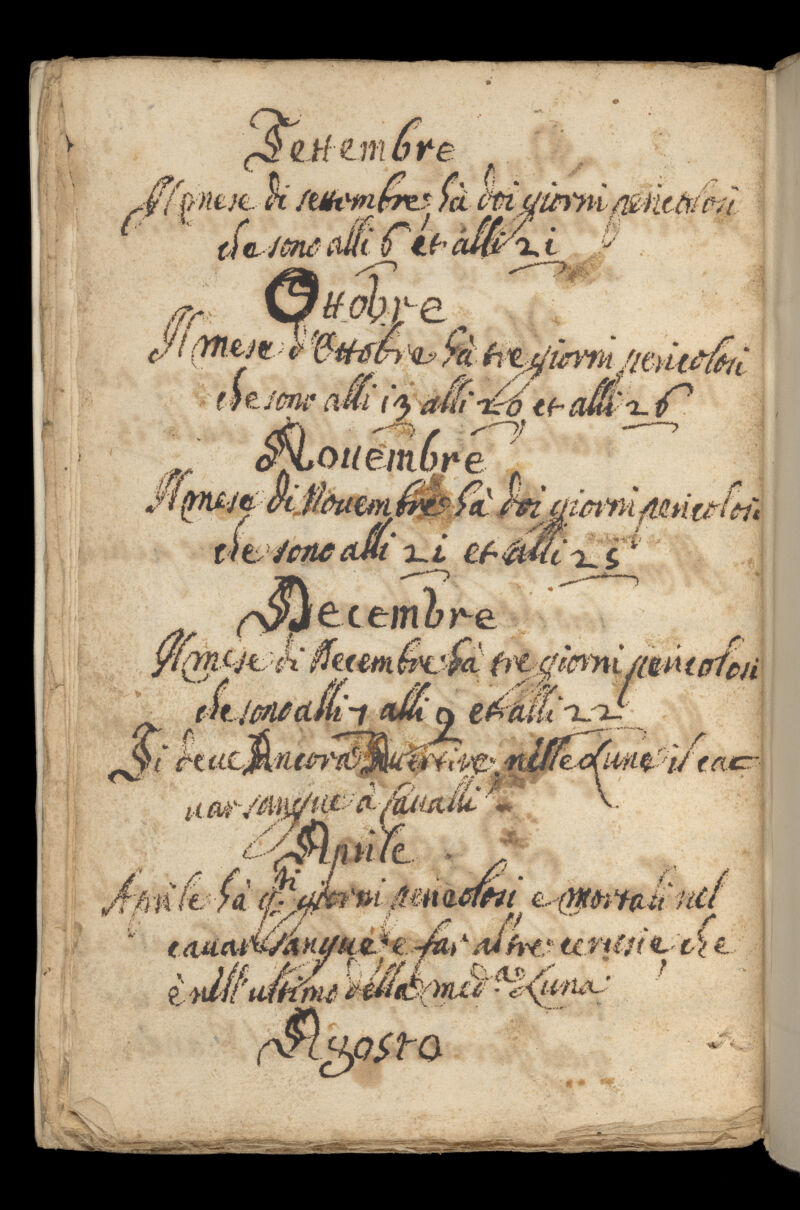 Settembre
Il mese di settembre, hà doi giorni pericolosi
che sono alli 6 et alli 21
Ottobre
Il mese d'Ottobre hà tre giorni pericolosi
che sono alli 13 alli 20, et alli 26
Nouembre
Il mese di Nouembre hà doi giorni pericolosi
che sono alli 21 et alli 25
Decembre
Il mese di Decembre hà tre giorni pericolosi
che sono alli 7 alli 9 et alli 22
Si deue Ancora Auertire, nelle Lune il ca=
uar sangue à Caualli
Aprile
Aprile hà q.ti giorni pericolosi, e mortali nel
cauar sangue, e far altre cerusie, che
è nell'ultimo della med.a Luna
Agosto